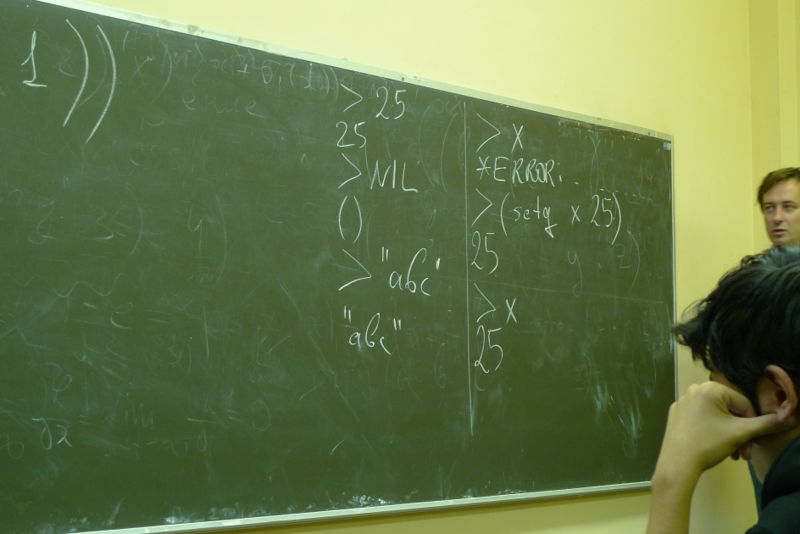 1))
> 25
25
> NIL
()
> "abc"
"abc"
> x
*ERROR..
> (setq x 25)
25
> x
25